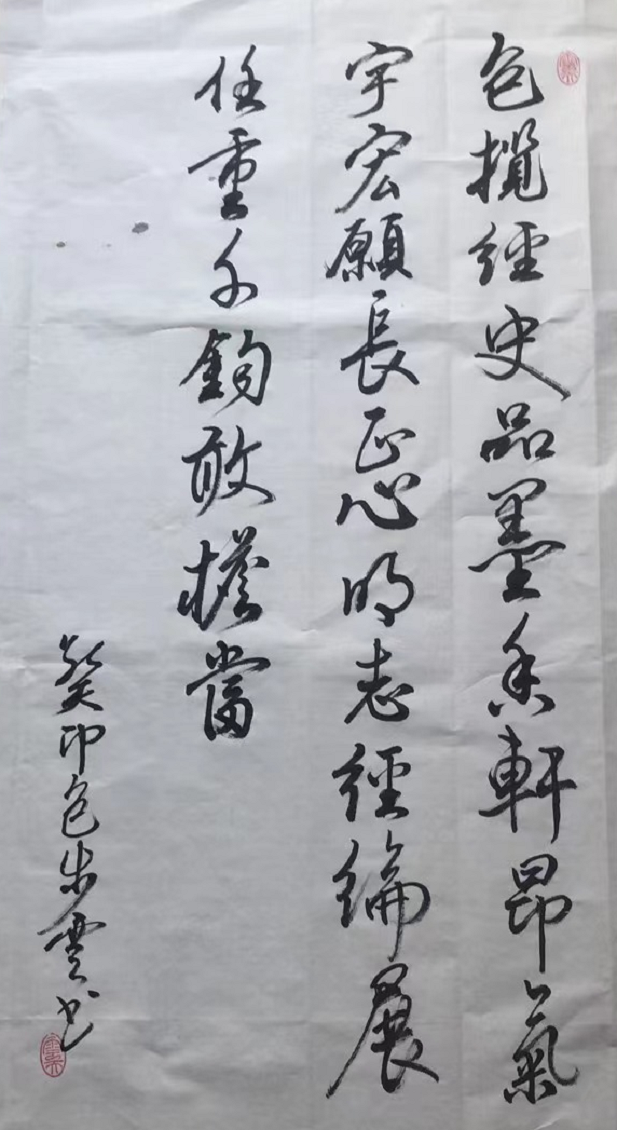 包揽經史品墨香軒昂氣
宇宏願長正心明志經綸展
任重千鈞敢擔當
癸卯包步雲书